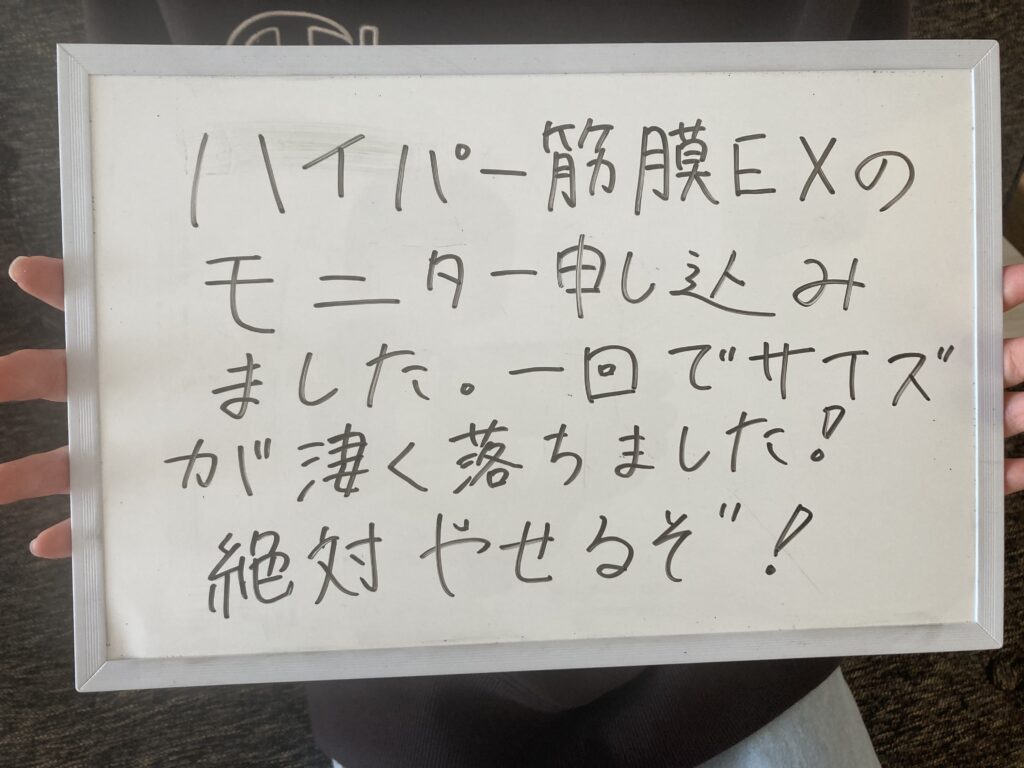 ハイパー筋膜EXの
モニター申し込み
ました。一回でサイズ
が凄く落ちました!
絶対やせるぞ!